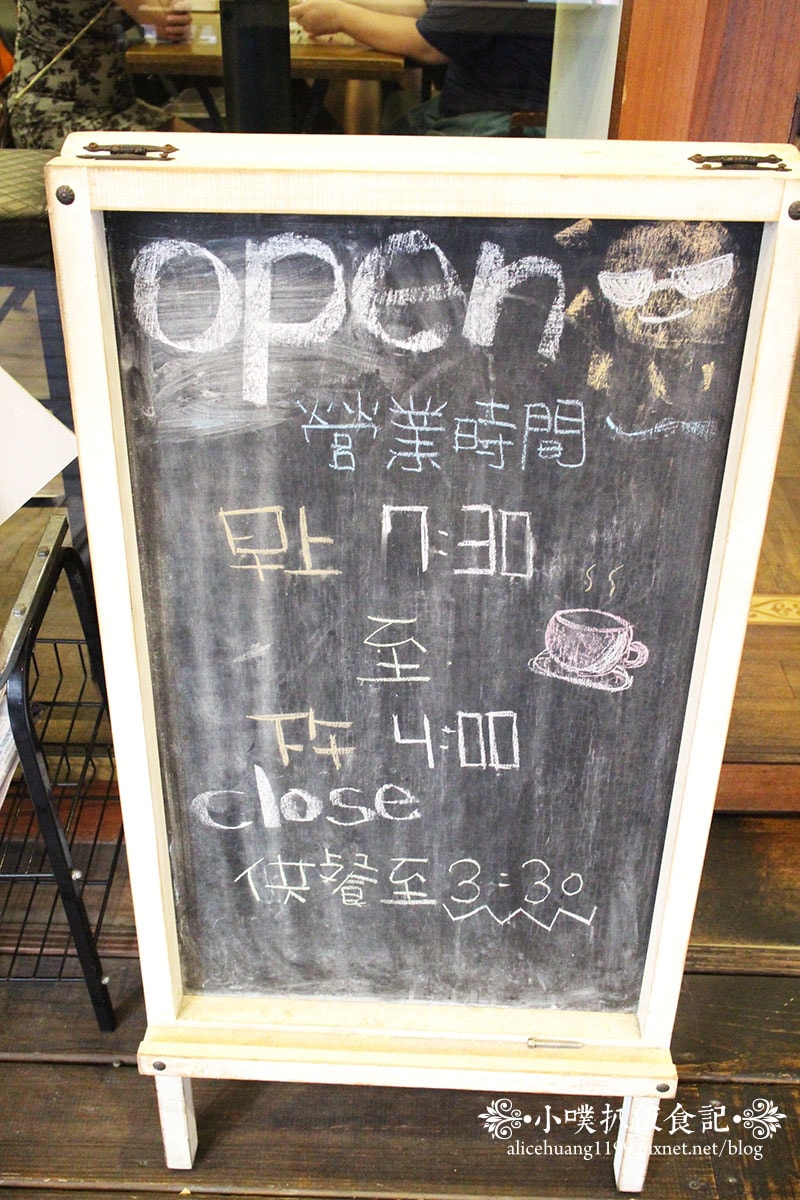 open
營業時間
早上 7:30
至
下午 4:00
close
供餐至3:30
小噗扒飯食記
alicehuang1199.pixnet.net/blog